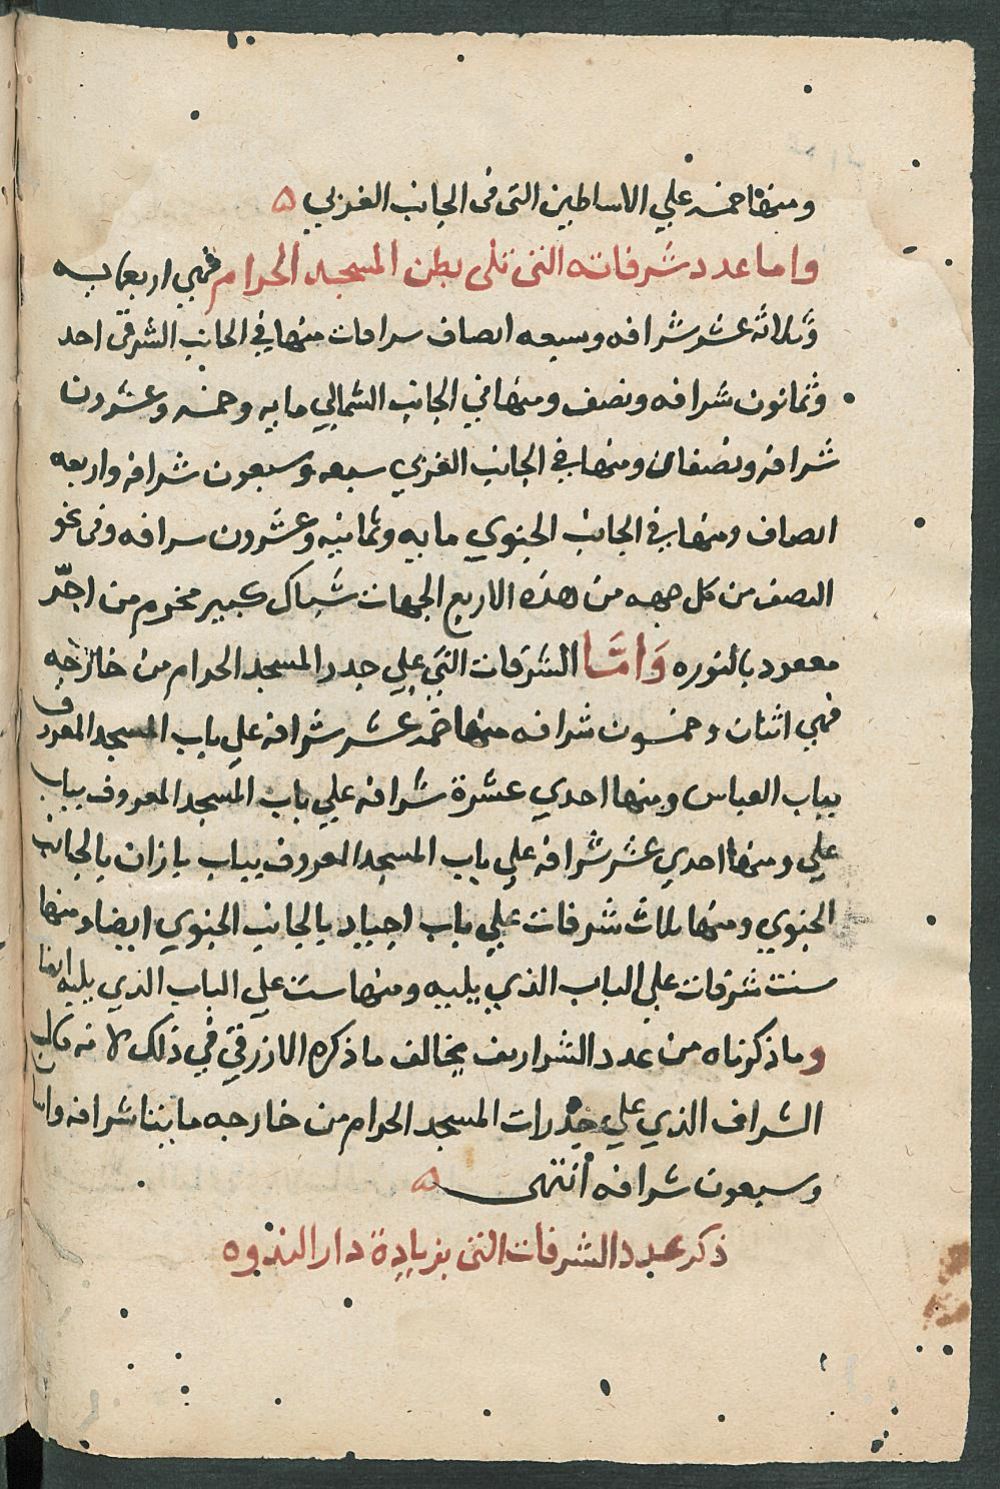 ومنها خمسه علي الاساطين التي في الجانب الغربي ۵
واما عدد شرفاته التي تلي بطن المسجد الحرام فهي اربعمايه
وثلاثة عشر شرافه وسبعه انصاف شرافات منها في الجانب الشرقي احد
وثمانون شرافه ونصف ومنها في الجانب الشمالي مايه وخمسه وعشرون
شرافه ونصفان ومنها في الجانب الغربي سبعه وسبعون شرافه واربعه
انصاف ومنها في الجانب الجنوبي مايه وثمانيه وعشرون شرافه وفي نحو
النصف من كل جهه من هذه الاربع الجهات شباك كبير مخرم من اجر
معمود بالنوره وَامَّا الشرفات التي علي جدر المسجد الحرام من خارجه
فهي اثنان وخمسون شرافه منها خمسه عشر شرافه علي باب المسجد المعروف
بباب العباس ومنها احدي عشرة شرافه علي باب المسجد المعروف بباب
علي ومنها احدي عشر شرافه علي باب المسجد المعروف بباب بازان بالجانب
الجنوبي ومنها ثلاث شرفات علي باب اجياد بالجانب الجنوبي ايضا ومنها
ست شرفات علي الباب الذي يليه ومنها ست علي الباب الذي يليه ايضا
وما ذكرناه من عدد الشراريف يخالف ما ذكره الازرقي في ذلك لانه قال
الشراف الذي علي جدرات المسجد الحرام من خارجه مايتا شرافه واثنان
وسبعون شرافه أنتهى ۵
ذكر عدد الشرفات التي بزيادة دار الندوه